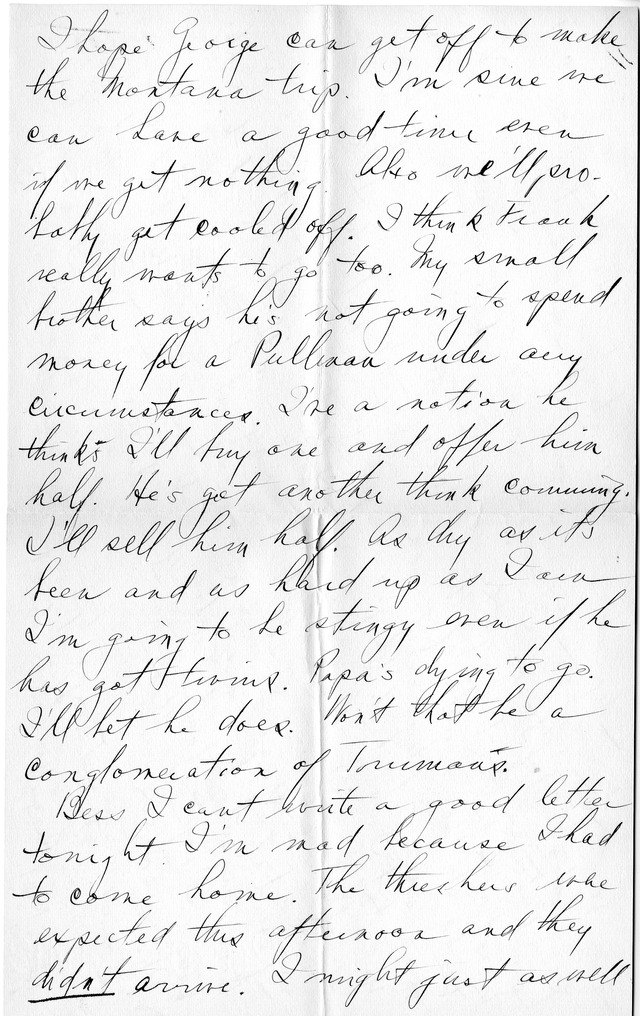 I hope George can get off to make
the Montana trip. I'm sure we
can have a good time even
if we get nothing. Also we'll pro-
bably get cooled off. I think Frank
really wants to go too. My small
brother says he's not going to spend
money for a Pullman under any
circumstances. I've a notion he
thinks I'll buy one and offer him
half. He's got another think comming.
I'll sell him half. As dry as it's
been and as hard up as I am
I'm going to be stingy even if he
has got twins. Papa's dying to go.
I'll bet he does. Won't that be a
conglomeration of Truman's.
Bess I can't write a good letter
tonight. I'm mad because I had
to come home. The threshers were
expected this afternoon and they
didn't arrive. I might just as well